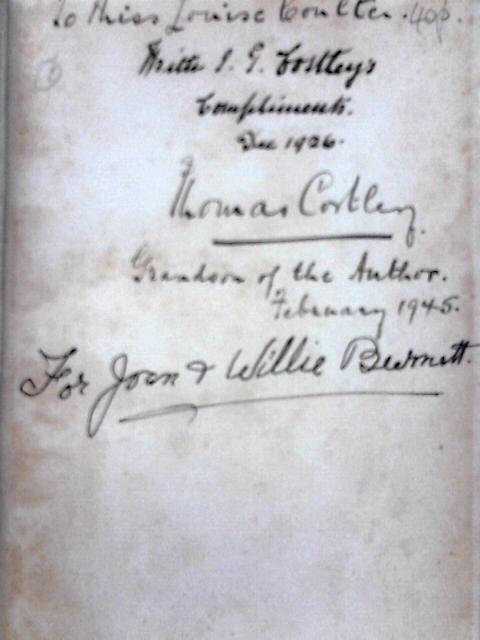 To Miss Louise Coulter. 40p.
With J. G. Costley's
Compliments.
Dec 1926.
Thomas Costley.
Grandson of the Author.
February 1945.
For Joan & Willie